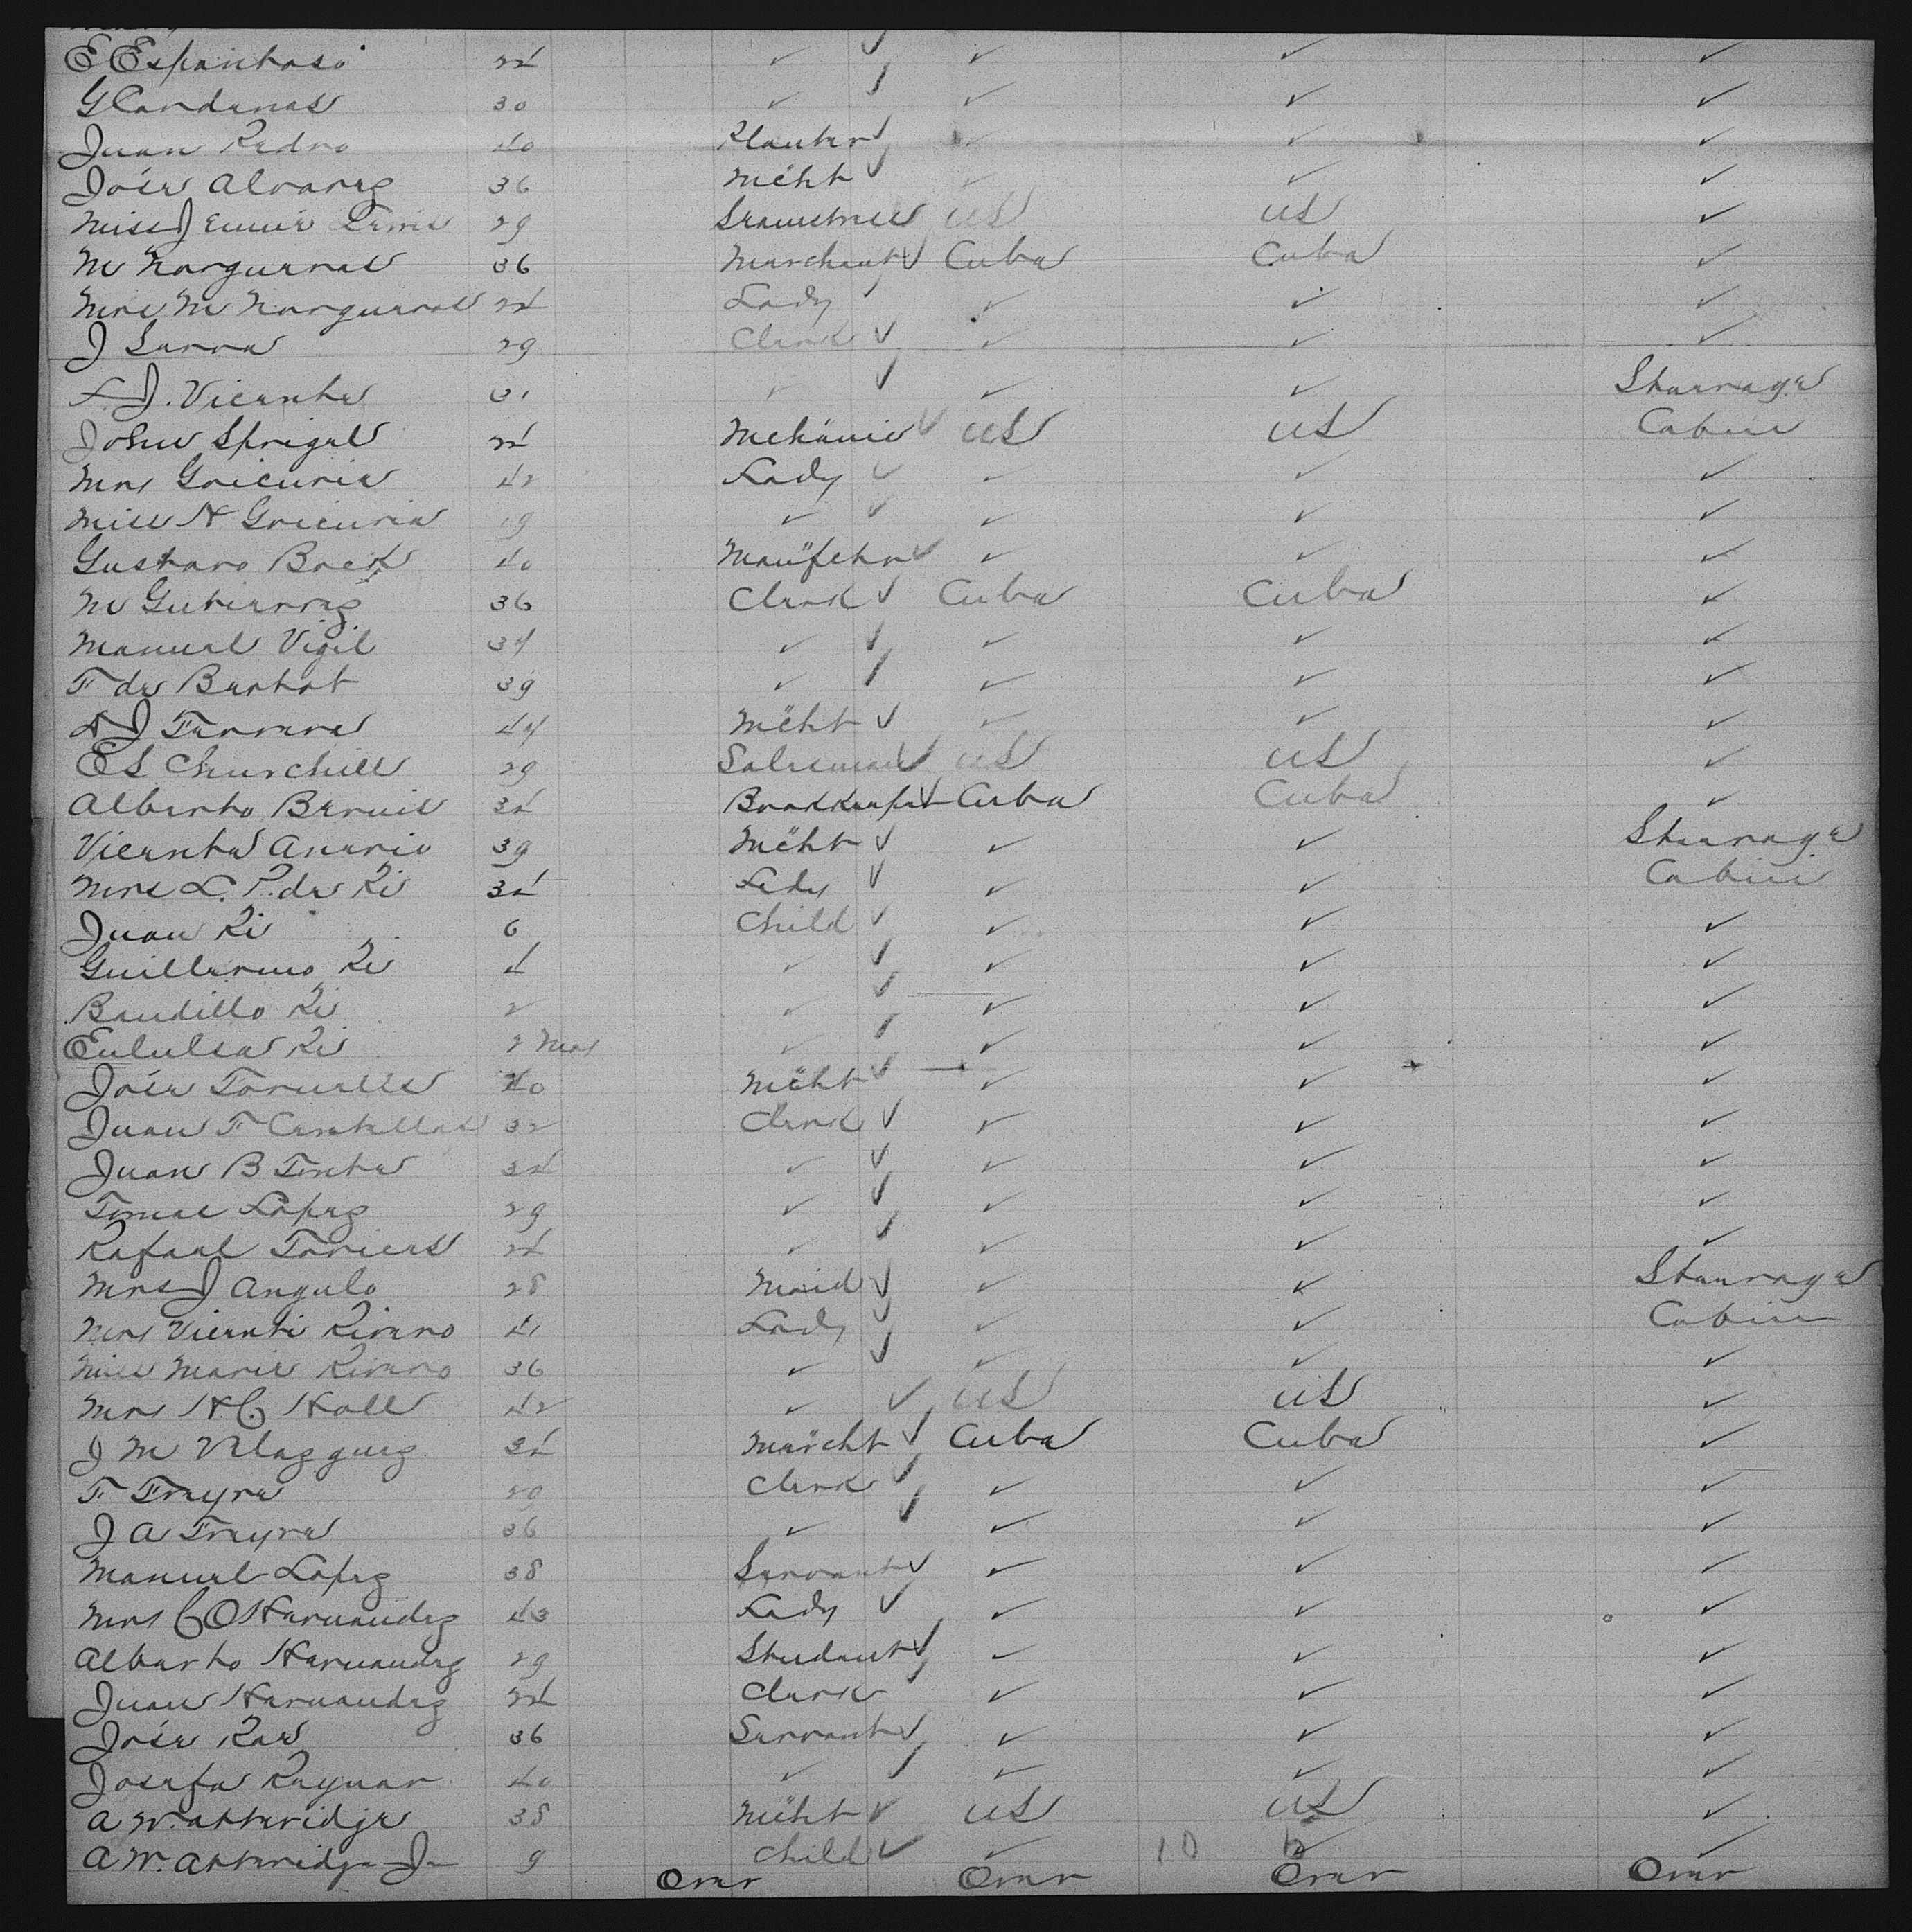 E Espantoso 24 ✓ ✓ ✓ ✓
G Cardenas 30 ✓ ✓ ✓ ✓
Juan Pedro 40 Planter ✓ ✓ ✓
José Alvarez 36 Mcht ✓ ✓ ✓
Miss Jennie 29 US US ✓
M Norgueras 36 Merchant Cuba Cuba ✓
Mrs M Norgueras 24 Lady ✓ ✓ ✓
J Sarra 29 Clerk ✓ ✓ ✓
F. J. Vicente 31 ✓ ✓ ✓ Steerage
John Sprigal 24 Mechanic US US Cabin
Mrs Goicuria 42 Lady ✓ ✓ ✓
Miss N Goicuria 19 ✓ ✓ ✓ ✓
Gustavo Bock 40 Manüfctr ✓ ✓ ✓
M Gutierrez 36 Clerk Cuba Cuba ✓
Manuel Vigil 34 ✓ ✓ ✓ ✓
F de Berhat 39 ✓ ✓ ✓ ✓
A J Ferrera 44 Mcht ✓ ✓ ✓
E S Churchill 29 Salesman US US ✓
Alberto Beruis 34 Bookkeeper Cuba Cuba ✓
Vicente Anerio 39 Mcht ✓ ✓ Steerage
Mrs L. P. de Ri 34 Lady ✓ ✓ Cabin
Juan Ri 6 Child ✓ ✓ ✓
Guillermo Ri 4 ✓ ✓ ✓ ✓
Baudillo Ri 2 ✓ ✓ ✓ ✓
Eululia Ri 2 Mos ✓ ✓ ✓ ✓
José Toruells 40 Mcht ✓ ✓ ✓
Juan F Centellas 32 Clerk ✓ ✓ ✓
Juan B 34 ✓ ✓ ✓ ✓
Tomas Lopez 29 ✓ ✓ ✓ ✓
Rafael 24 ✓ ✓ ✓ ✓
Mrs J Angulo 28 Maid ✓ ✓ Steerage
Mrs Vicenti Rivero 41 Lady ✓ ✓ Cabin
Miss Marie Rivero 36 ✓ ✓ ✓ ✓
Mrs H. C. Hall 42 ✓ US US ✓
J M 34 Mercht Cuba Cuba ✓
F Freyre 29 Clerk ✓ ✓ ✓
J A Freyre 36 ✓ ✓ ✓ ✓
Manuel Lopez 38 Servant ✓ ✓ ✓
Mrs C O Hernandez 43 Lady ✓ ✓ ✓
Alberto Hernandez 29 Student ✓ ✓ ✓
Juan Hernandez 24 Clerk ✓ ✓ ✓
José Rae 36 Servant ✓ ✓ ✓
Josefa Reynar 40 ✓ ✓ ✓ ✓
A W. Attwridge 38 Mcht US US ✓
A W. Attwridge Jr 9 Child ✓ 10 ✓ ✓
Over Over Over Over